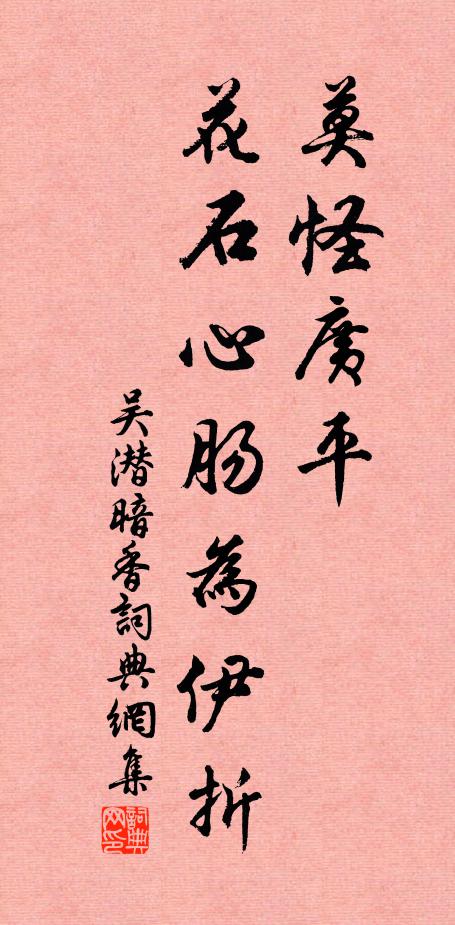 莫怪廣平
花石心肠為伊折
吴潜暗香詞典網集
詞典网印